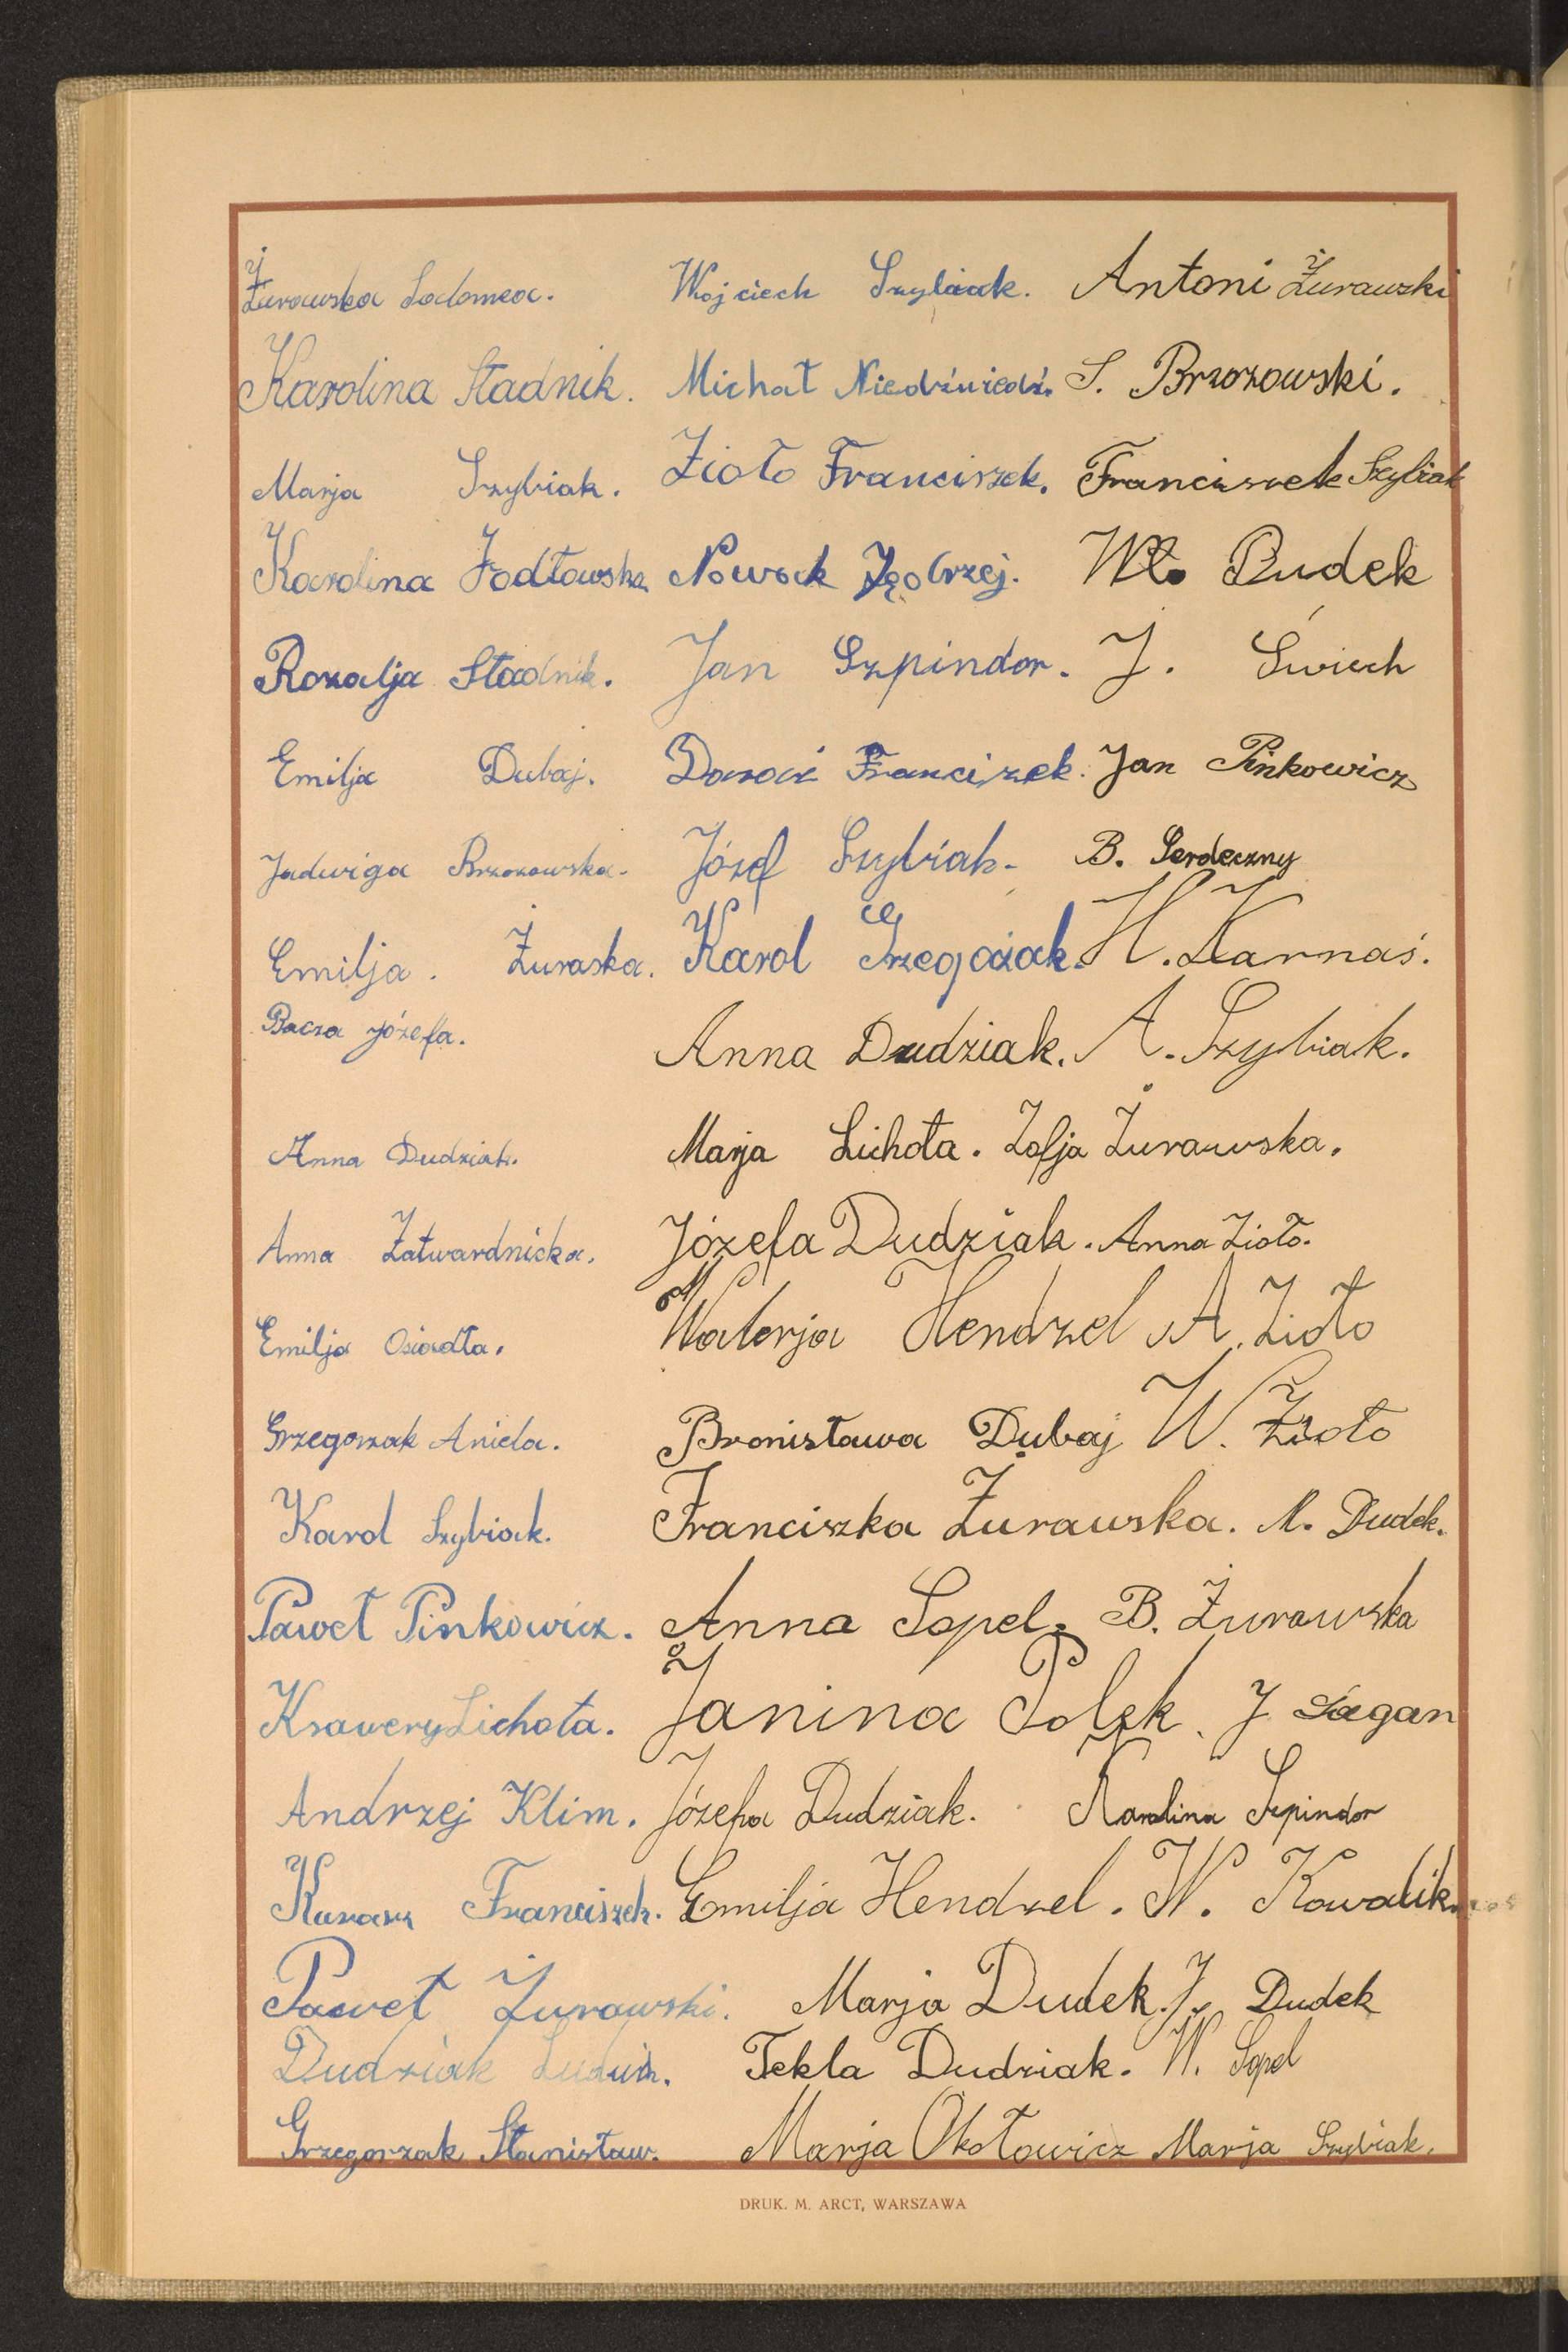 Żurawska Salomea. Wojciech Szybiak. Antoni Żurawski
Karolina Stadnik. Michał Niedźwiedź. S. Brzozowski.
Marja Szybiak. Zioło Franciszek. Franciszek Szybiak
Karolina Jodłowska Nowak Jędrzej. Wł. Dudek
Rozalja Stadnik. Jan Szpindor. J. Świech
Emilja Dubaj. Franciszek. Jan Pinkowicz
Jadwiga Brzozowska. Józef Szybiak. B. Serdeczny
Emilja. Żuraska. Karol H. Karnaś.
Bacza Józefa. Anna Dudziak. A. Szybiak.
Anna Dudziak. Marja Lichota. Zofja Żurawska.
Anna Zatwardnicka. Józefa Dudziak. Anna Zioło.
Emilja Osiadła. Walerja Hendzel A. Zioło
Grzegorzak Aniela. Bronisława Dubaj W. Zioło
Karol Szybiak. Franciszka Żurawska. M. Dudek.
Paweł Pinkowicz. Anna Sopel. B. Żurawska
Ksawery Lichota. Janina Polek. J. Łagan
Andrzej Klim. Józefa Dudziak. Karolina Szpindor
Franciszek. Emilja Hendzel. W. Kowalik.
Paweł Żurawski. Marja Dudek. J. Dudek
Dudziak Ludwik. Tekla Dudziak. W. Sopel
Grzegorzak Stanisław. Marja Okołowicz Marja Szybiak.
DRUK. M. ARCT, WARSZAWA